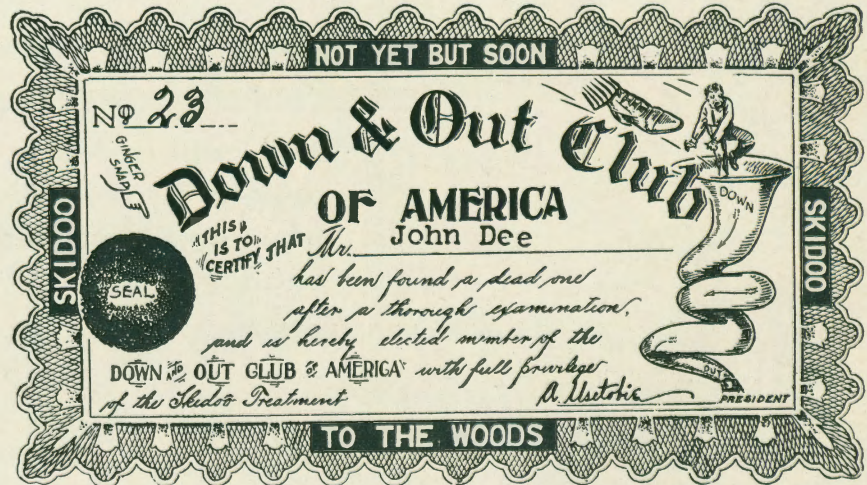 NOT YET BUT SOON
No 23
GINGER
SNAP
Down & Out Club
OF AMERICA
THIS
IS TO
CERTIFY THAT
Mr. John Dee
has been found a dead one
after a thorough examination,
and is hereby elected member of the
DOWN AND OUT CLUB OF AMERICA with full privilege
of the Skidoo Treatment
A. Usetobie
PRESIDENT
SEAL
DOWN
OUT
SKIDOO
SKIDOO
TO THE WOODS